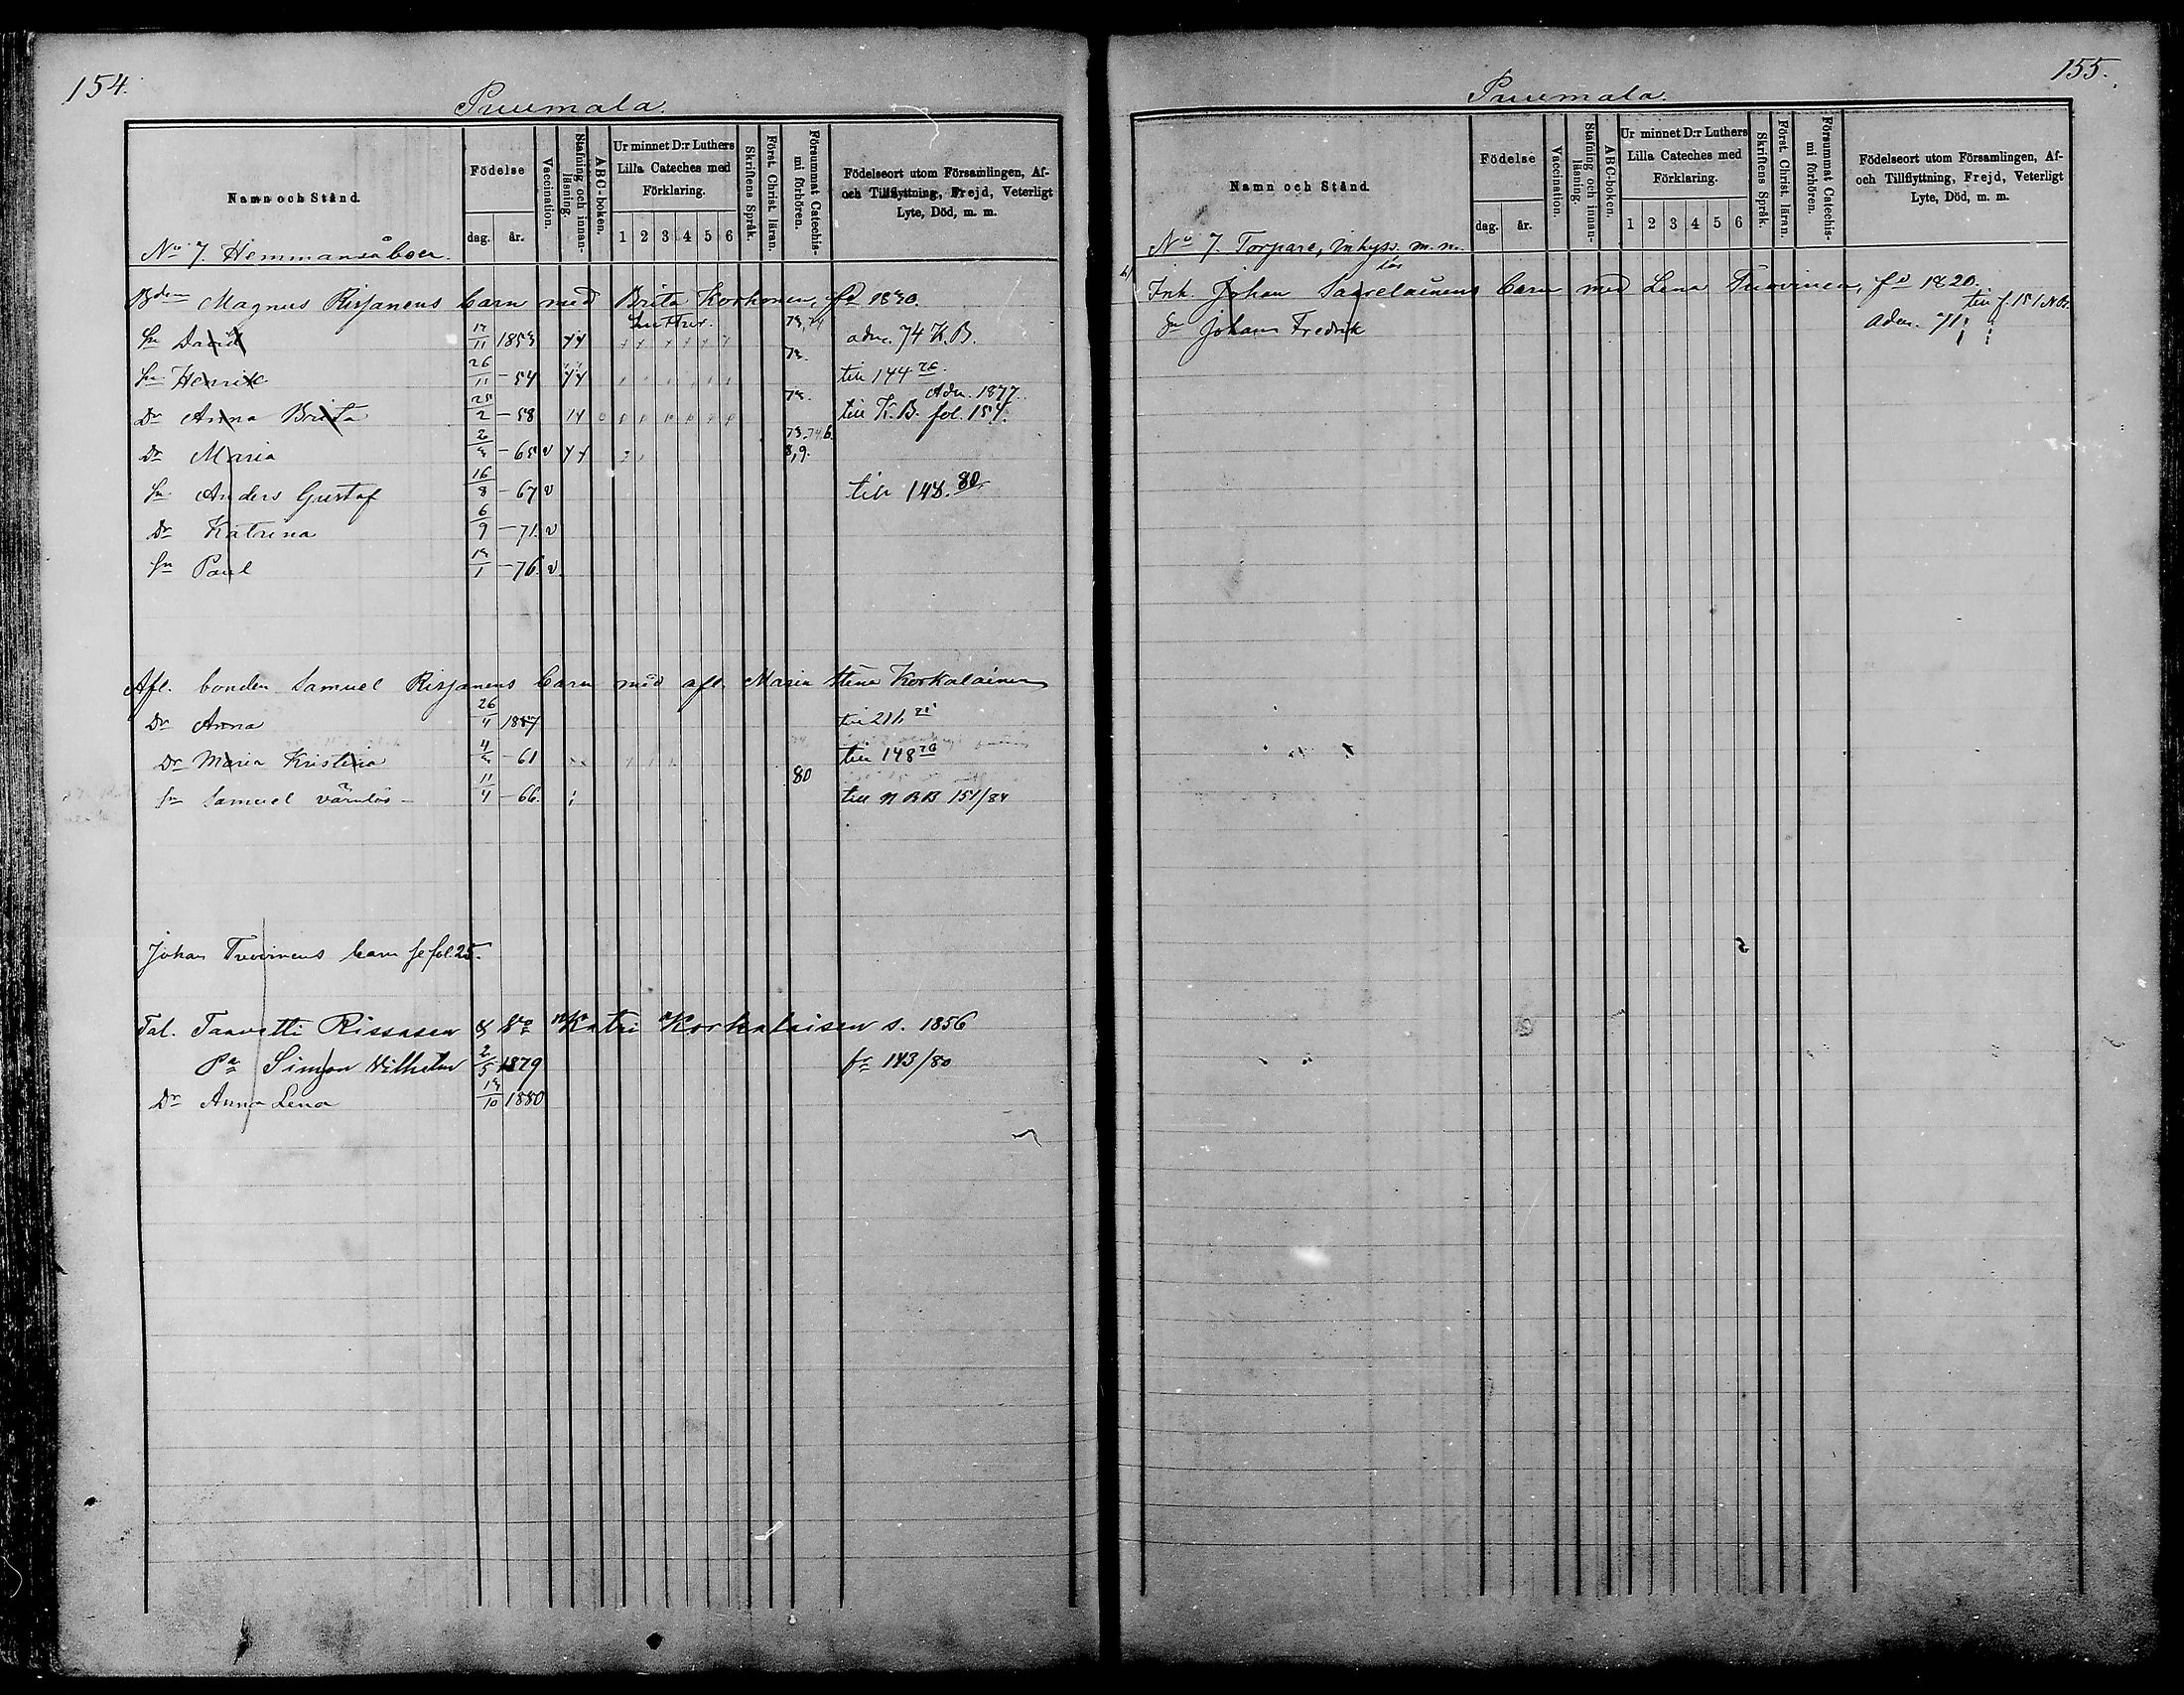 154.
Puumala.
Namn och Stånd.
Födelse
dag. år.
Vaccination.
Stafning och innanläsning.
ABC-boken.
Ur minnet D:r Luthers Lilla Cateches med Förklaring.
1 2 3 4 5 6
Skriftens Språk.
Först. Christ. läran.
Försummat Catechismi förhören.
Födelseort utom Församlingen, Af- och Tillflyttning, Frejd, Veterligt Lyte, Död, m. m.
No 7. Hemmansåboer.
Bden Magnus Risjanens barn med Brita Korhonen, fd 1830.
Sn David 11 1853 73,74 adm. 74 K.B.
Sn Henrik 26/11 - 54 73. till 144 76.
Dr Anna Brita 25/2 - 58 14 73. Adm. 1877. till K.B. fol. 154.
Dr Maria - 65 v 8,9.
Sn Anders Gustaf 16/8 - 67 v till 148. 80
Dr Katrina 6/9 - 71. v
Sn Paul - 76. v
Afl. bonden Samuel Risjanens barn med afl. Maria Stina Korkalainen
Dr Anna 26/4 1857 till 211.
Dr Maria Kristina - 61 till 148 76
Sn Samuel värnlös - 11/4 - 66. 80 till N BB 151/84
Johan Tuovinens barn se fol. 25.
Tal. Taavetti Rissasen & Katri Korkalaisen s. 1856
Simon Vilhelm 2/5 1879 143/80
Dr Anna Lena 10 1880
155.
Puumala.
Namn och Stånd.
Födelse
dag. år.
Vaccination.
Stafning och innanläsning.
ABC-boken.
Ur minnet D:r Luthers Lilla Cateches med Förklaring.
1 2 3 4 5 6
Skriftens Språk.
Först. Christ. läran.
Försummat Catechismi förhören.
Födelseort utom Församlingen, Af- och Tillflyttning, Frejd, Veterligt Lyte, Död, m. m.
No 7. Torpare, Inhyss. m.m.
Inh. Johan Saarelainens barn med Lena Tuovinen, fd 1820.
Sn Johan Fredrik adm. 71.